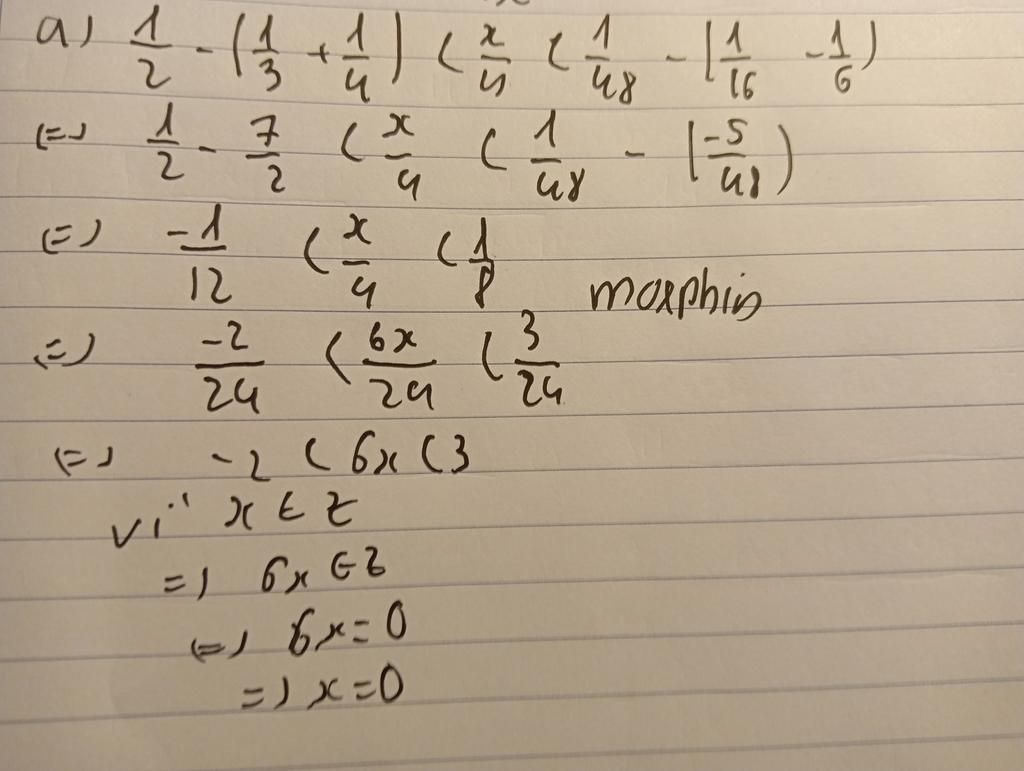 a) 1/2 - (1/3 + 1/4) < x/4 < 1/48 - (1/16 - 1/6)
<=> 1/2 - 7/2 < x/4 < 1/48 - (-5/48)
<=> -1/12 < x/4 < 1/8
morphin
<=> -2/24 < 6x/24 < 3/24
<=> -2 < 6x < 3
vì x ∈ Z
=> 6x ∈ Z
<=> 6x = 0
=> x = 0